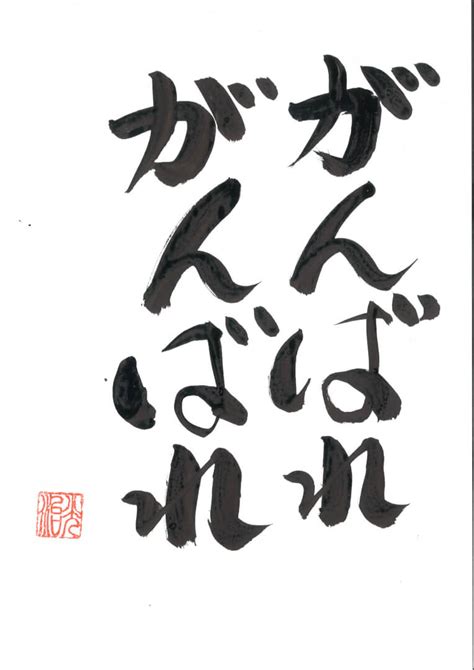 がんばれ
がんばれ